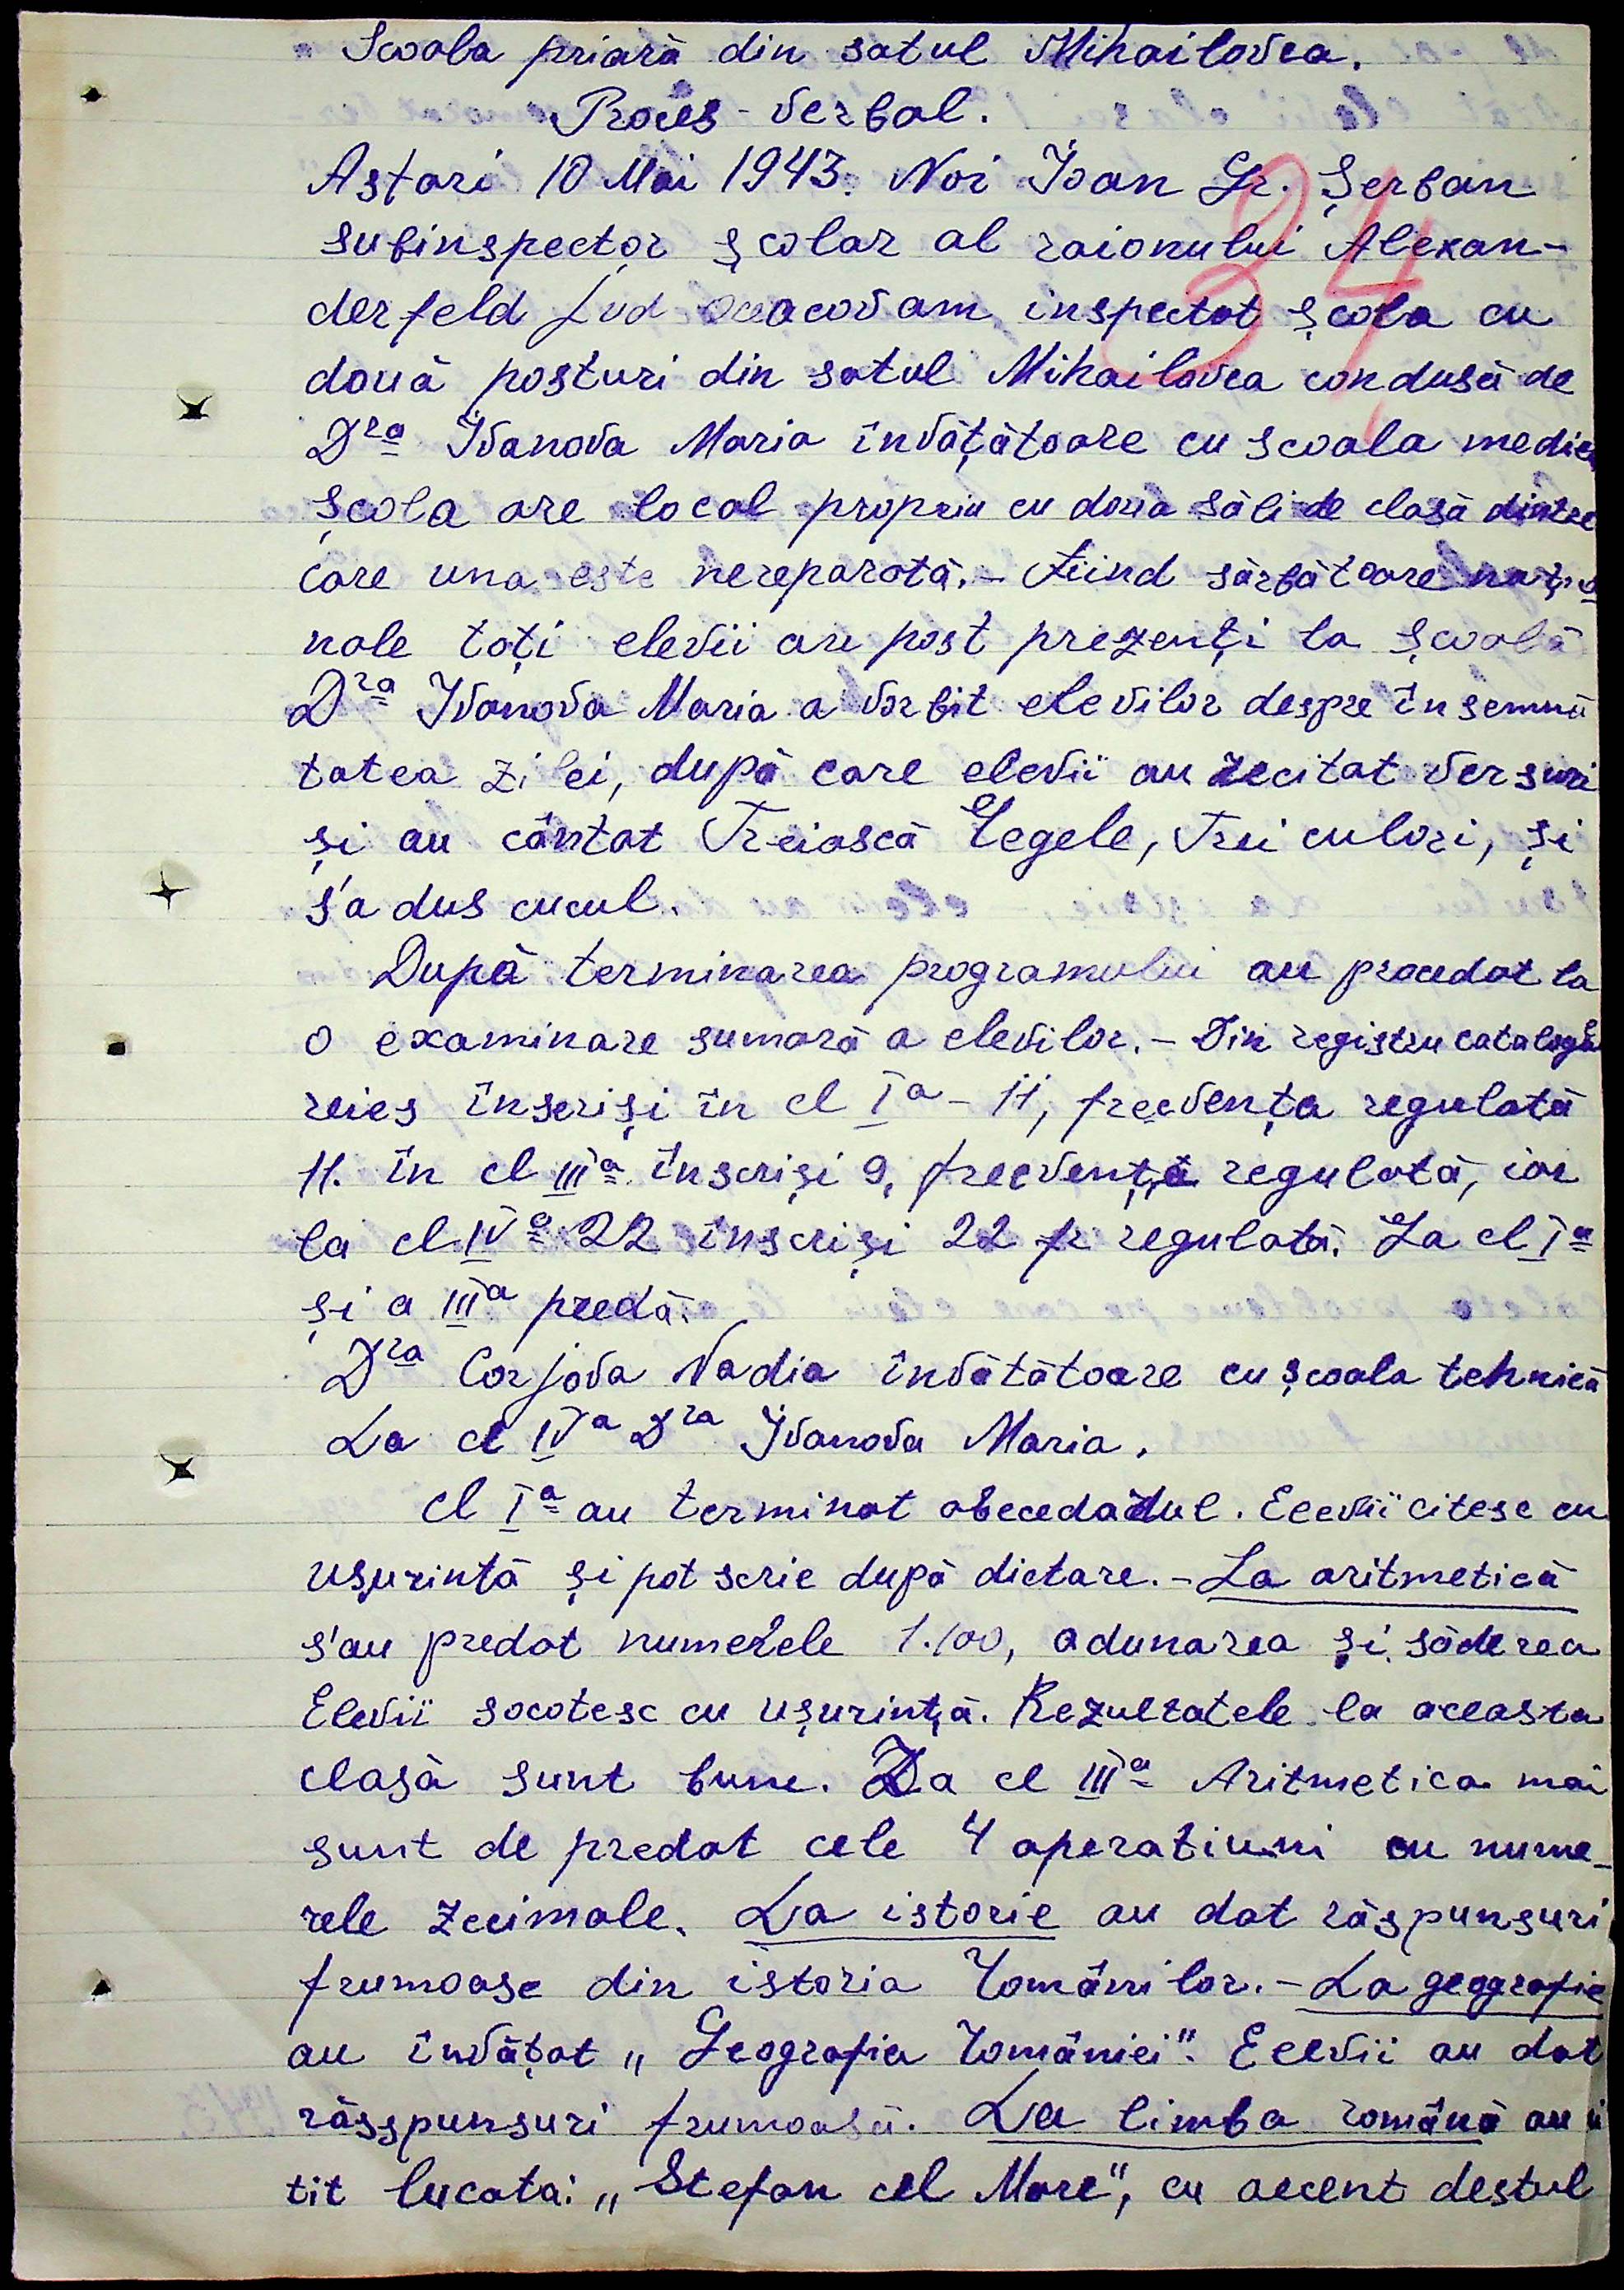 Scoala priară din satul Mihailovca.
Proces-verbal.
Aștari 10 Mai 1943. Noi Ioan Gr. Șerban
subinspector școlar al raionului Alexan-
derfeld Jud Oceacov am inspectat școla cu
două posturi din satul Mihailovca condusă de
Dra Ivanova Maria învățătoare cu scoala medie
Școla are local propriu cu doua săli de clasă dintre
care una este nereparată.- Fiind sărbătoare națio
nale toți elevii au post prezenți la școală
Dra Ivanova Maria a vorbit elevilor despre însemnă
tatea zilei, după care elevii au recitat versuri
și au cântat Treiască Regele, Trei culori, și
s'a dus cucul.
După terminarea programului au procedat la
o examinare sumară a elevilor.- Din registru catalog
reies înscriși în cl Ia - 11, frecvența regulată
11. în cl IIIa înscriși 9, frecvență regulată, iar
la cl IVa 22 înscriși 22 fr regulată. La cl Ia
și a IIIa predă.
Dra Corjova Nadia învătătoare cu școala tehnică
La cl IVa Dra Ivanova Maria.
Cl Ia au terminat abecedarul. Elevii citesc cu
ușurintă și pot scrie după dictare.- La aritmetică
s'au predat numerele 1.100, adunarea și săderea
Elevii socotesc cu ușurință. Rezultatele la aceasta
clasă sunt bune. La cl IIIa Aritmetica mai
sunt de predat cele 4 operatiuni cu nume-
rele zecimale. La istorie au dat răspunsuri
frumoase din istoria Românilor.- La geografie
au învățat „Geografia României". Elevii au dat
răsspunsuri frumoasă. La limba română au ci
tit lucata: „Stefan cel Mare", cu accent destul
34